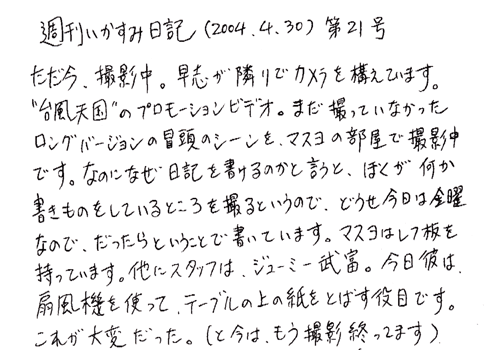 週刊いかすみ日記 (2004.4.30) 第21号
ただ今、撮影中。早志が隣りでカメラを構えています。
"台風天国"のプロモーションビデオ。まだ撮っていなかった
ロングバージョンの冒頭のシーンを、マスヨの部屋で撮影中
です。なのになぜ日記を書けるのかと言うと、ぼくが何か
書きものをしているところを撮るというので、どうせ今日は金曜
なので、だったらということで書いています。マスヨはレフ板を
持っています。他にスタッフは、ジューミー武富。今日彼は、
扇風機を使って、テーブルの上の紙をとばす役目です。
これが大変だった。(と今は、もう撮影終ってます)